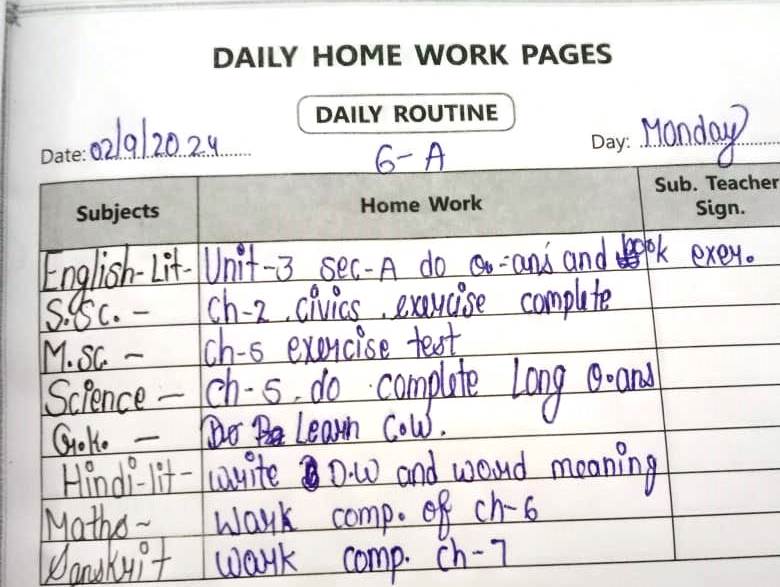 DAILY HOME WORK PAGES
DAILY ROUTINE
Date: 02/9/2024 Day: Monday
6-A
Subjects Home Work Sub. Teacher Sign.
English-Lit- Unit-3 sec-A do Q.-ans and book exer.
S.Sc. - Ch-2 civics exercise complete
M.Sc - Ch-5 exercise test
Science - Ch-5. do complete Long Q.ans
G.K. - Do Learn C.W.
Hindi-lit- write D.W and word meaning
Maths - Work comp. of ch-6
Sanskrit work comp. ch-7